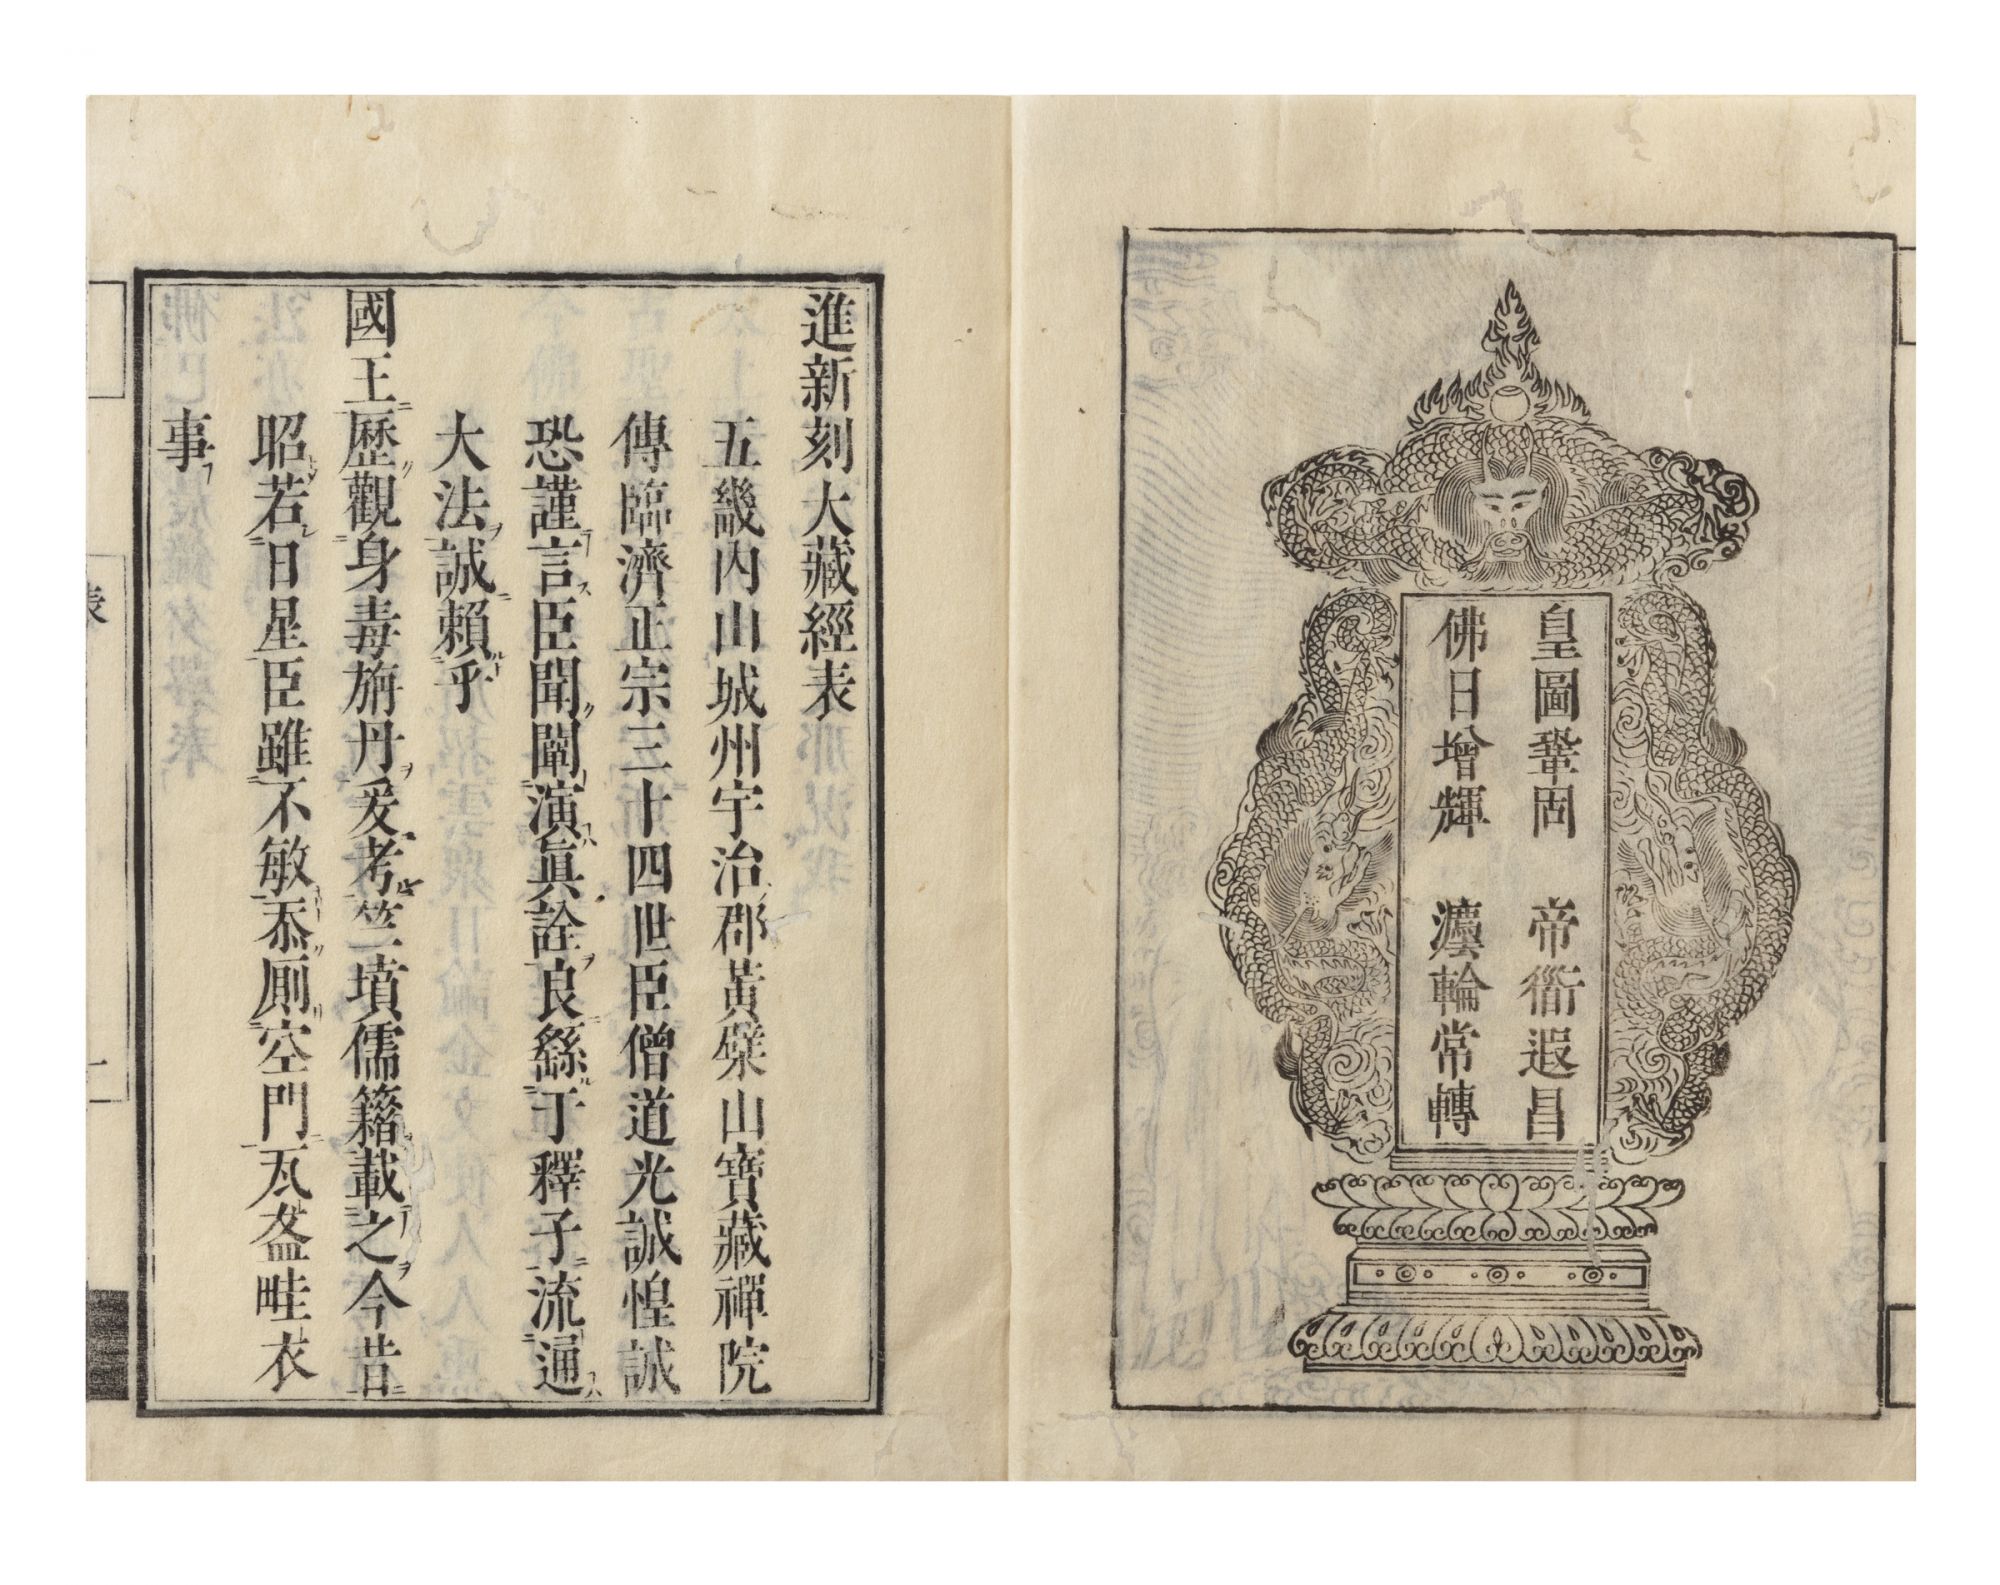 皇圖鞏固　帝衟遐昌
佛日增輝　灋輪常轉
進新刻大藏經表
五畿内山城州宇治郡黃檗山寶藏禪院
傳臨濟正宗三十四世臣僧道光誠惶誠
恐謹言臣聞闡演眞詮良繇于釋子流通
大法誠賴乎
國王歷觀身毒旃丹爰考竺墳儒籍載之今昔
昭若日星臣雖不敏忝厠空門瓦盋畦衣
事
表